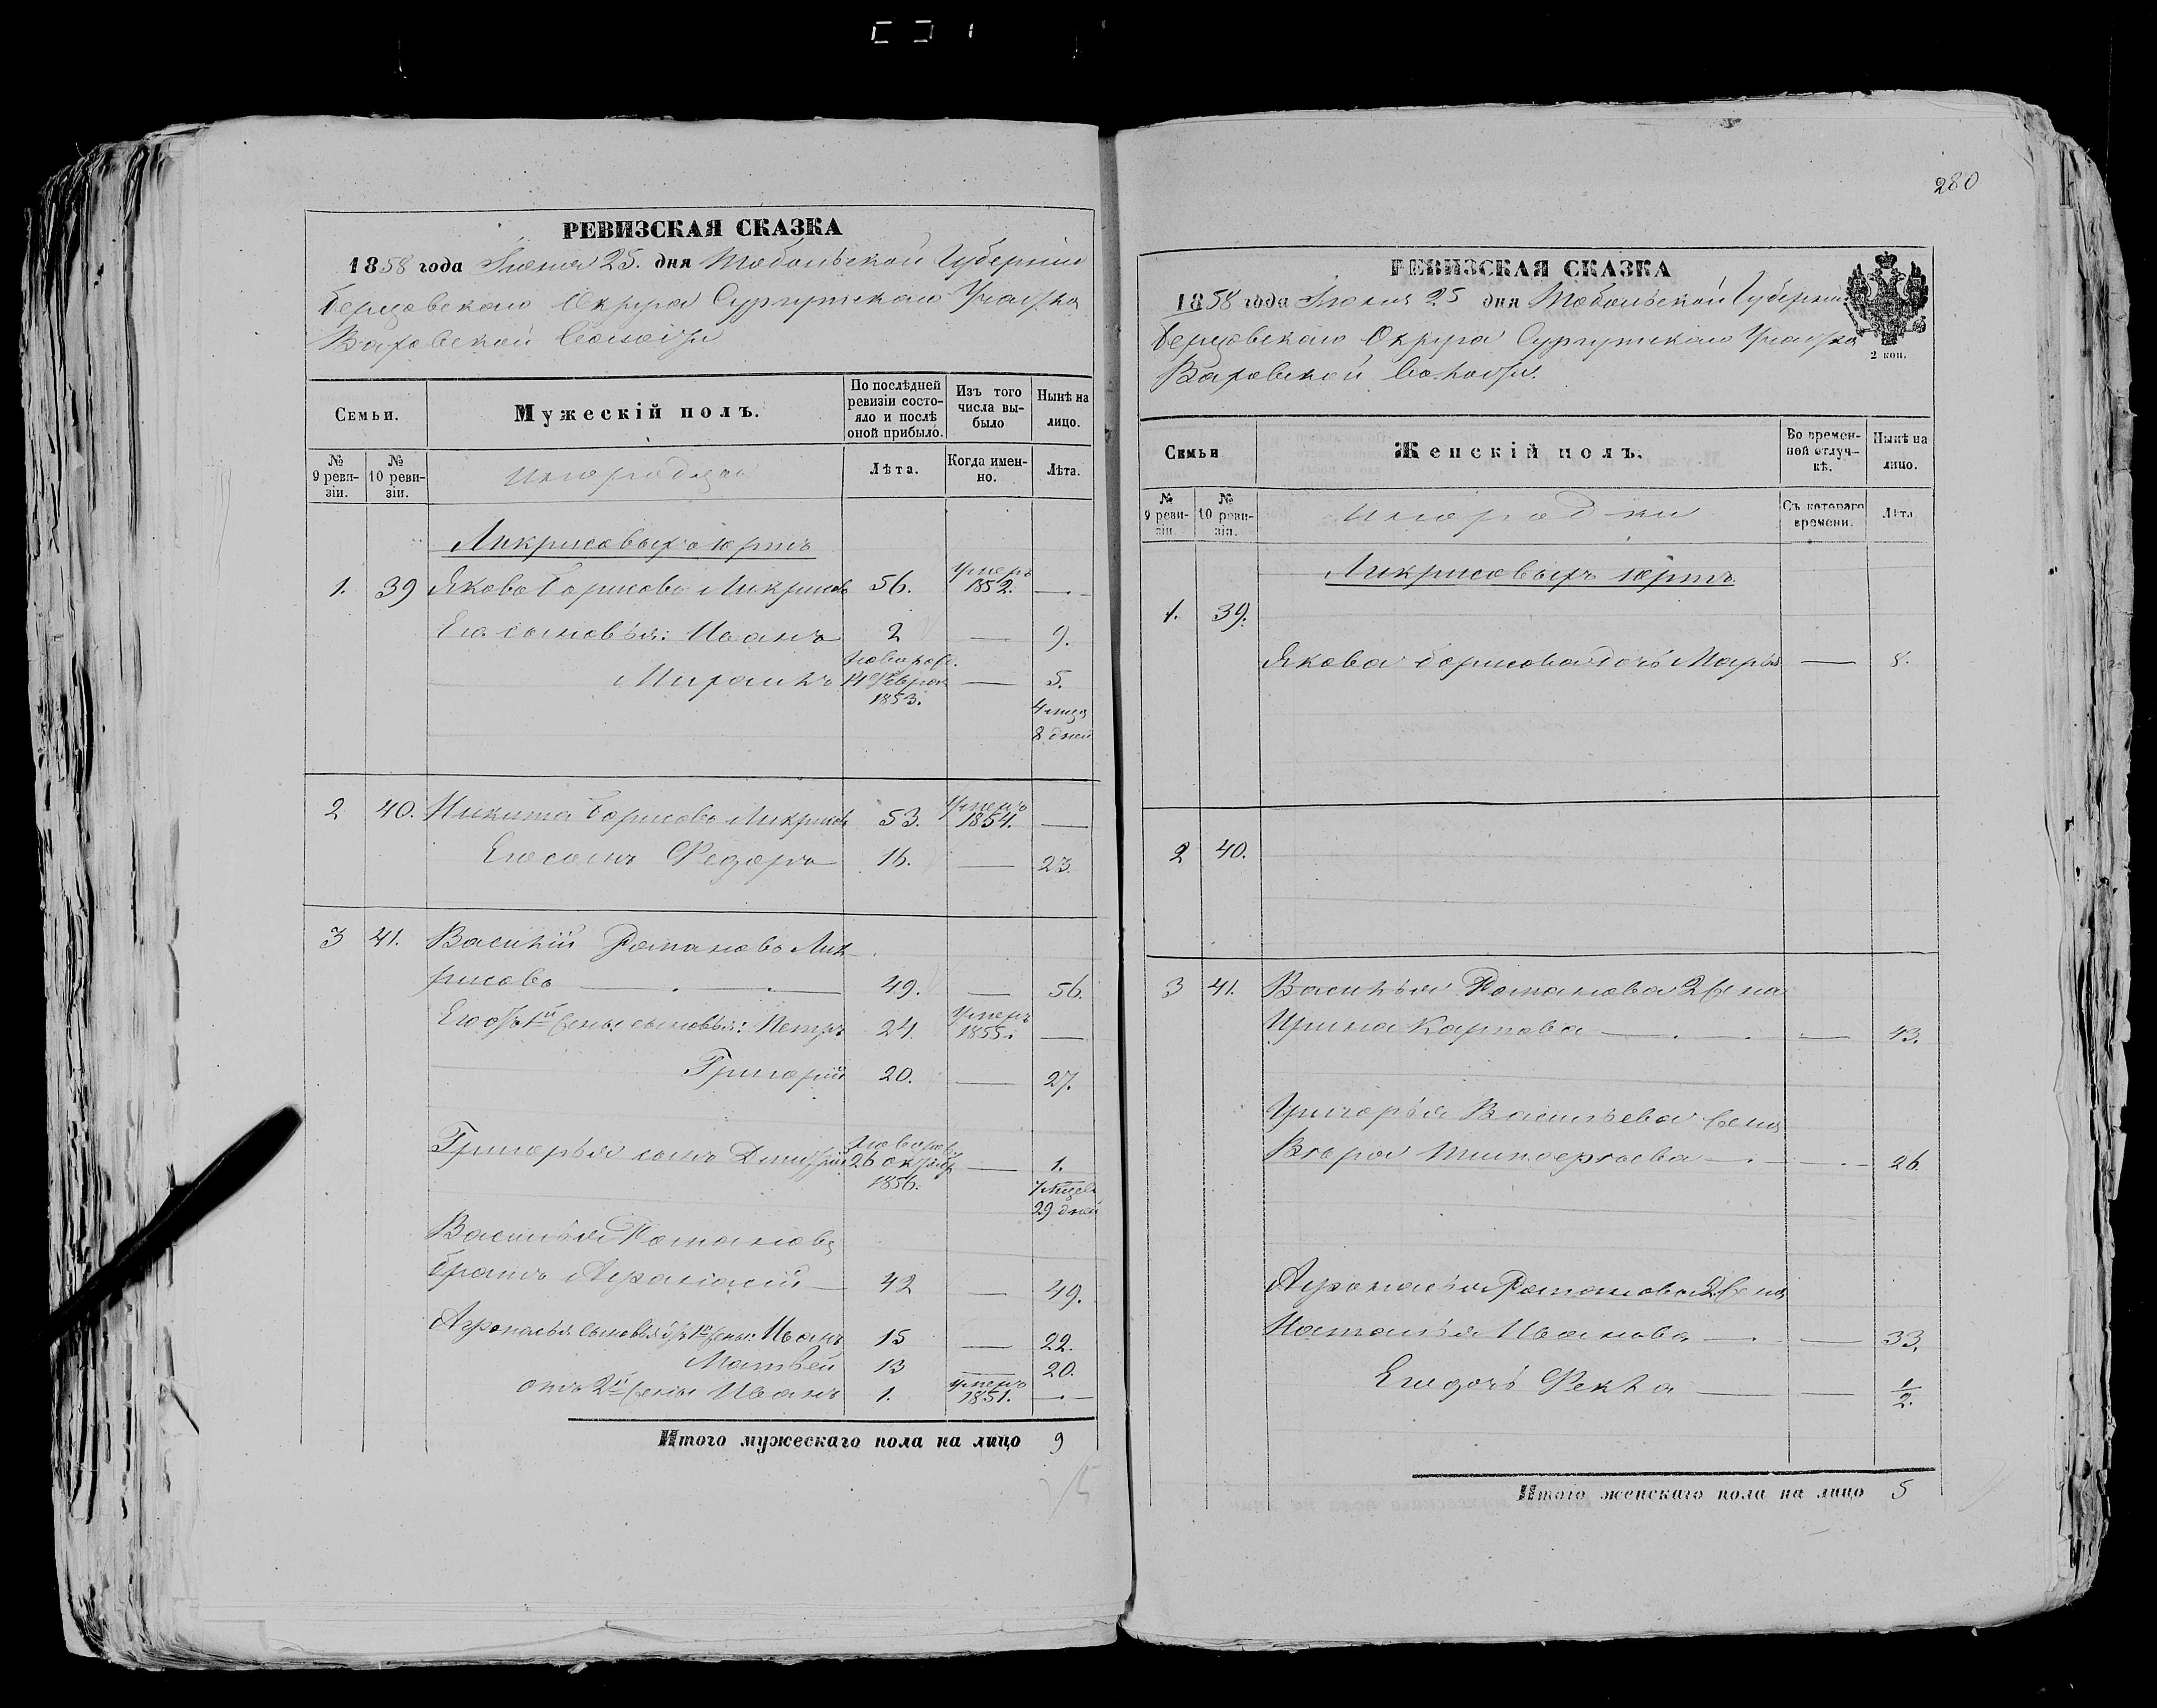 280
РЕВИЗСКАЯ СКАЗКА
1858 года Июня 25. дня Тобольской Губерніи
Березовскаго Округа Сургутскаго Участка
Ваховской Волости
Семьи.
Мужескій полъ.
По послѣдней ревизіи состояло и послѣ оной прибыло.
Изъ того числа выбыло
Нынѣ на лицо.
№ 9 ревизіи.
№ 10 ревизіи.
Инородцы
Лѣта.
Когда именно.
Лѣта.
Ликрисовыхъ юртъ
1. 39 Яковъ Борисовъ Ликрисовъ 56. Умеръ 1852. —
Его сыновья: Иванъ 2 — 9.
новорож. 14 Февраля 1853. — 5.
4 мѣся
8 дней
2 40. Никита Борисовъ Ликрисовъ 53. Умеръ 1854. —
Его сынъ Федоръ 16. — 23.
3 41. Василій Романовъ Лик-
рисовъ — 49. — 56.
Его отъ 1й жены сыновья: Петръ 24. Умеръ 1855. —
Григорій 20. — 27.
Григорья сынъ Дмитрій новорож. 26 октябр 1856. — 1.
7 мѣсяц
29 дней
Василья Романова
братъ Афанасій 42 — 49.
Афанасья сыновья отъ 1й жены: Иванъ 15 — 22.
Матвей 13 — 20.
отъ 2й жены Иванъ 1. умеръ 1851. —
Итого мужескаго пола на лицо 9
РЕВИЗСКАЯ СКАЗКА
1858 года Июня 25 дня Тобольской Губерніи
Березовскаго Округа Сургутскаго Участка
Ваховской Волости.
2 коп.
Семьи
Женскій полъ.
Во временной отлучкѣ.
Нынѣ на лицо.
№ 9 ревизіи.
№ 10 ревизіи.
Инородки
Съ котораго времени.
Лѣта
Ликрисовыхъ юртъ
1. 39.
Якова Борисова дочь Марья — 8.
2 40.
3 41. Василья Романова 2 жена
Ирина Карпова — — 43.
Григорья Васильева жена
Вѣра Тимофѣева — — 26.
Афанасья Романова 2 жена
Наталья Иванова — — 33.
Его дочь Фекла — — 1/2.
Итого женскаго пола на лицо 5